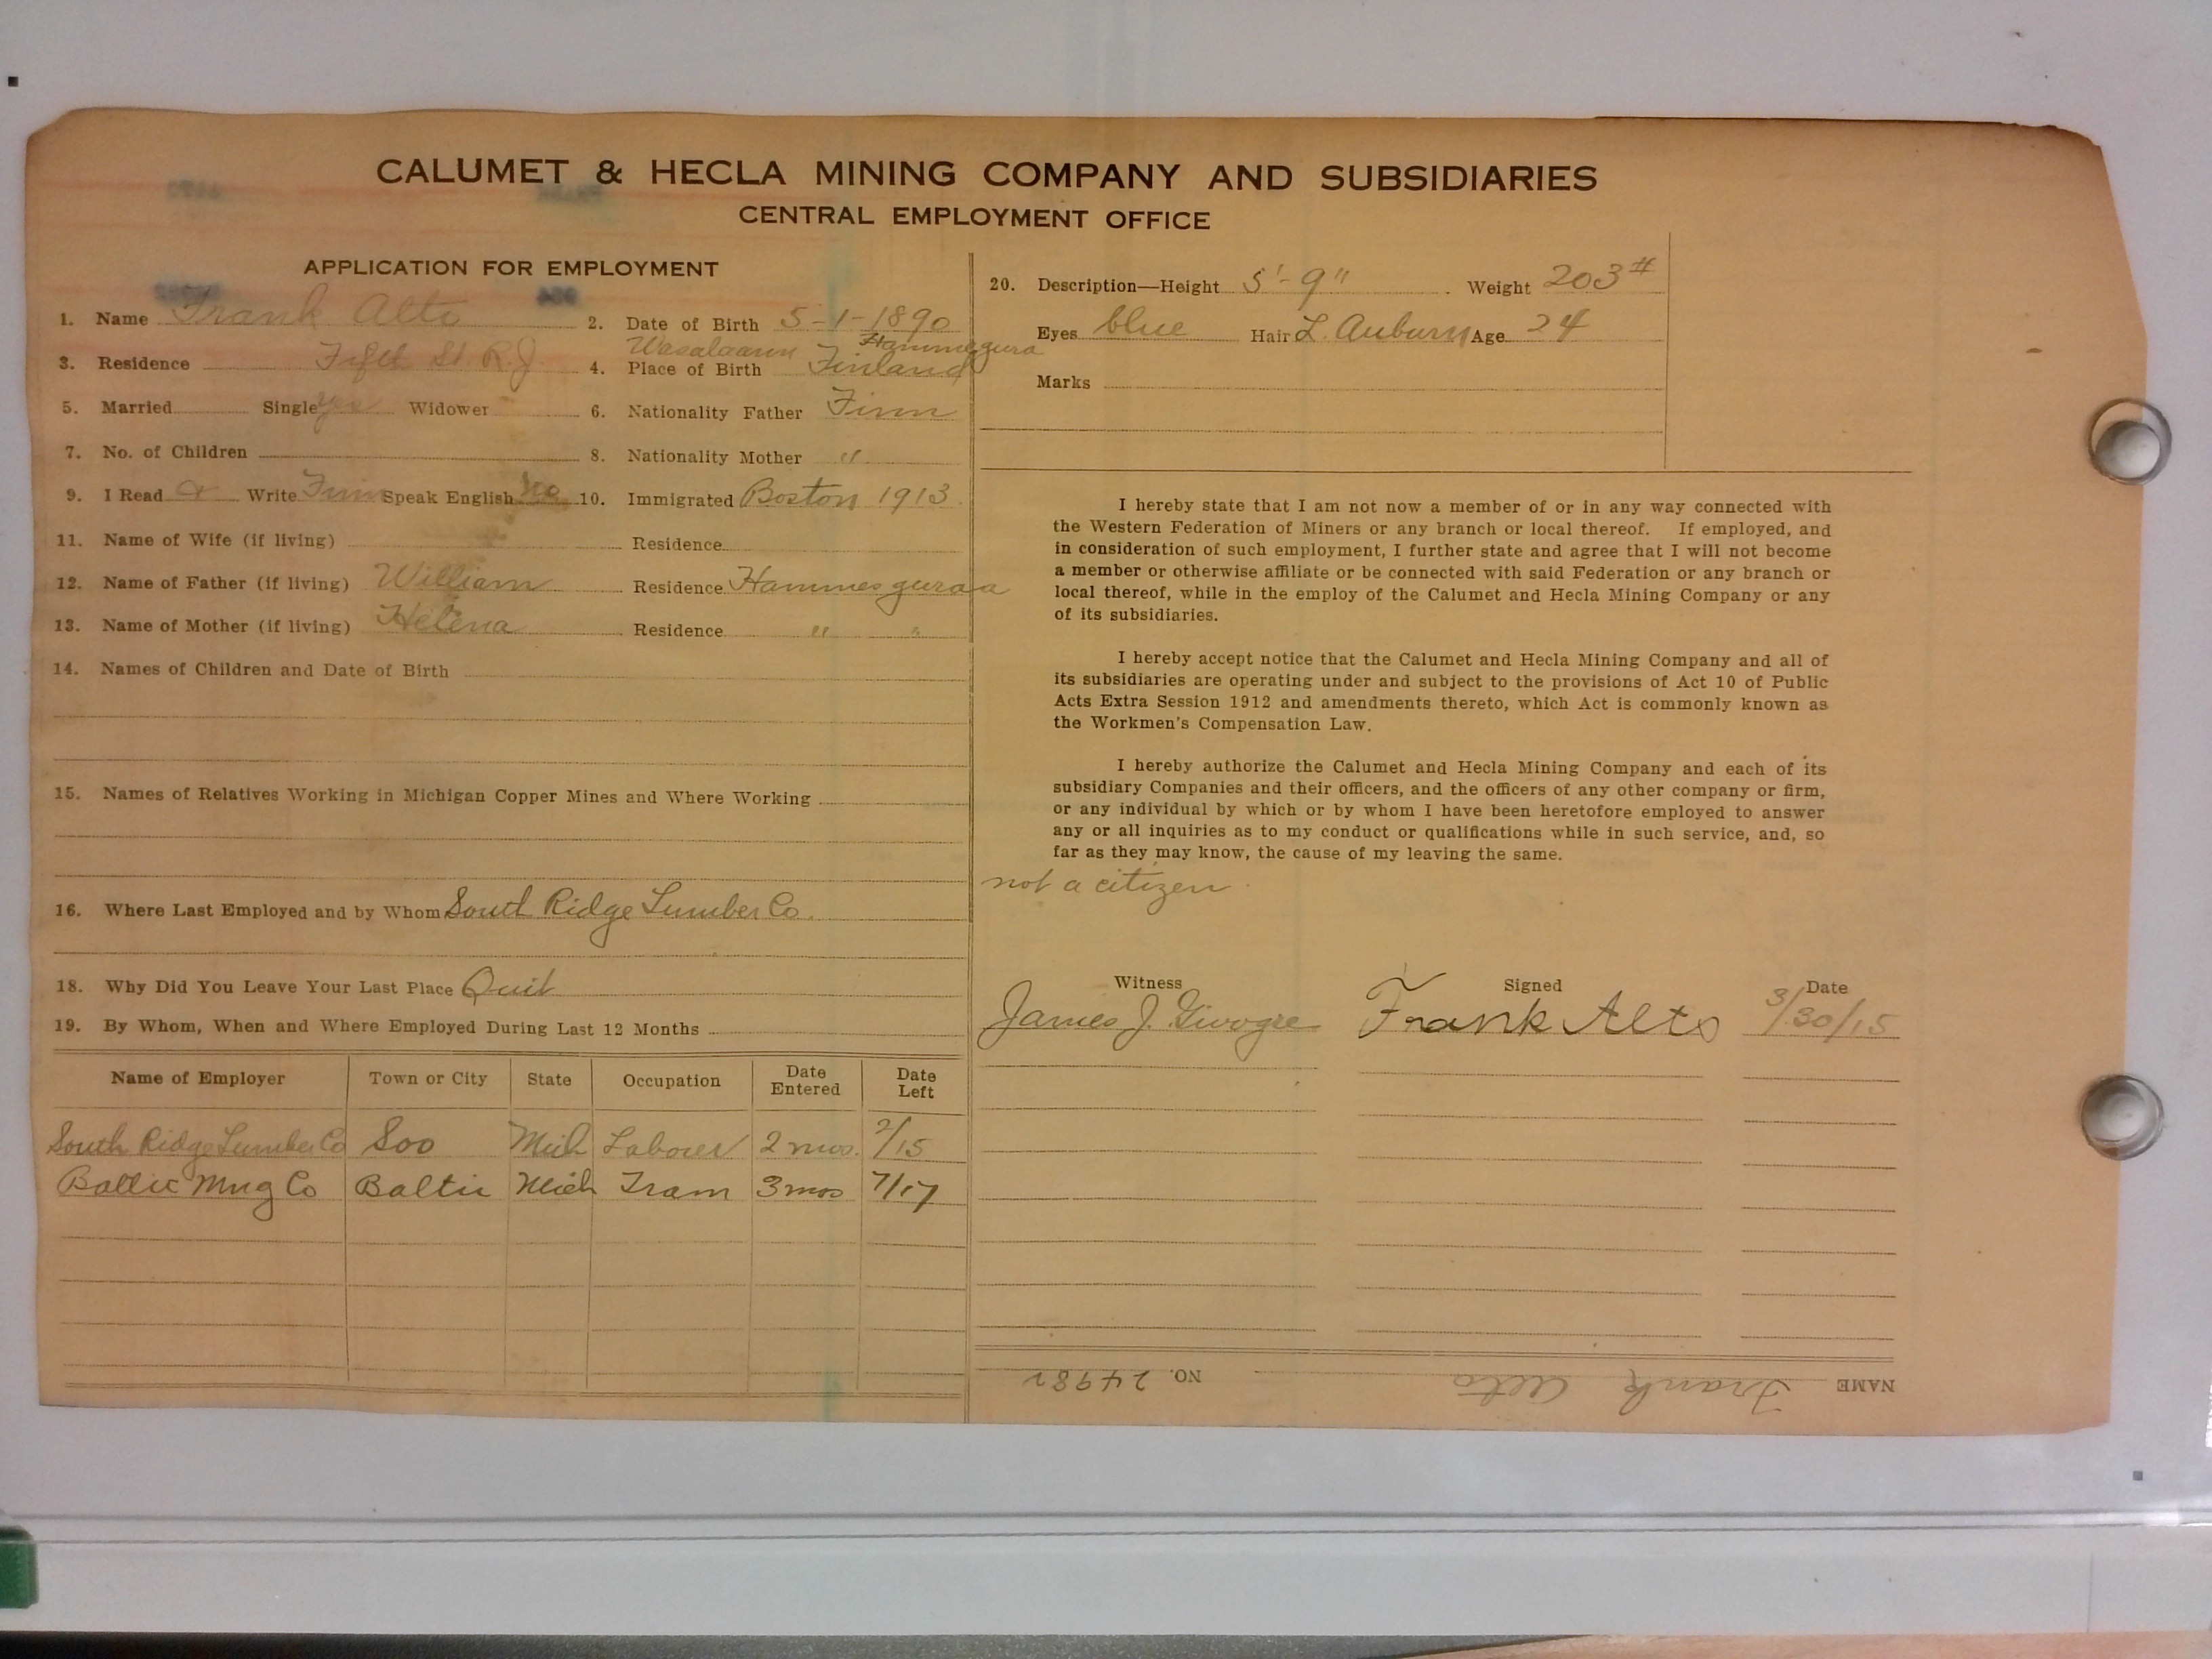 CALUMET & HECLA MINING COMPANY AND SUBSIDIARIES
CENTRAL EMPLOYMENT OFFICE
APPLICATION FOR EMPLOYMENT
1. Name Frank Alto
2. Date of Birth 5-1-1890
3. Residence Fifth St. R.J.
Wasalaann Hammesgura
4. Place of Birth Finland
5. Married Single yes Widower
6. Nationality Father Finn
7. No. of Children
8. Nationality Mother "
9. I Read & Write Finn Speak English no
10. Immigrated Boston 1913
11. Name of Wife (if living) Residence
12. Name of Father (if living) William Residence Hammesguraa
13. Name of Mother (if living) Helena Residence " "
14. Names of Children and Date of Birth
15. Names of Relatives Working in Michigan Copper Mines and Where Working
16. Where Last Employed and by Whom South Ridge Lumber Co.
18. Why Did You Leave Your Last Place Quit
19. By Whom, When and Where Employed During Last 12 Months
Name of Employer Town or City State Occupation Date Entered Date Left
South Ridge Lumber Co Soo Mich Laborer 2 mos. 2/15
Baltic Mng Co Baltic Mich Tram 3 mos 7/17
20. Description—Height 5'-9" Weight 203#
Eyes blue Hair L. Auburn Age 24
Marks
I hereby state that I am not now a member of or in any way connected with
the Western Federation of Miners or any branch or local thereof. If employed, and
in consideration of such employment, I further state and agree that I will not become
a member or otherwise affiliate or be connected with said Federation or any branch or
local thereof, while in the employ of the Calumet and Hecla Mining Company or any
of its subsidiaries.
I hereby accept notice that the Calumet and Hecla Mining Company and all of
its subsidiaries are operating under and subject to the provisions of Act 10 of Public
Acts Extra Session 1912 and amendments thereto, which Act is commonly known as
the Workmen's Compensation Law.
I hereby authorize the Calumet and Hecla Mining Company and each of its
subsidiary Companies and their officers, and the officers of any other company or firm,
or any individual by which or by whom I have been heretofore employed to answer
any or all inquiries as to my conduct or qualifications while in such service, and, so
far as they may know, the cause of my leaving the same.
not a citizen.
Witness Signed Date
James J. Frank Alto 3/30/15
NAME Frank Alto NO. 24982